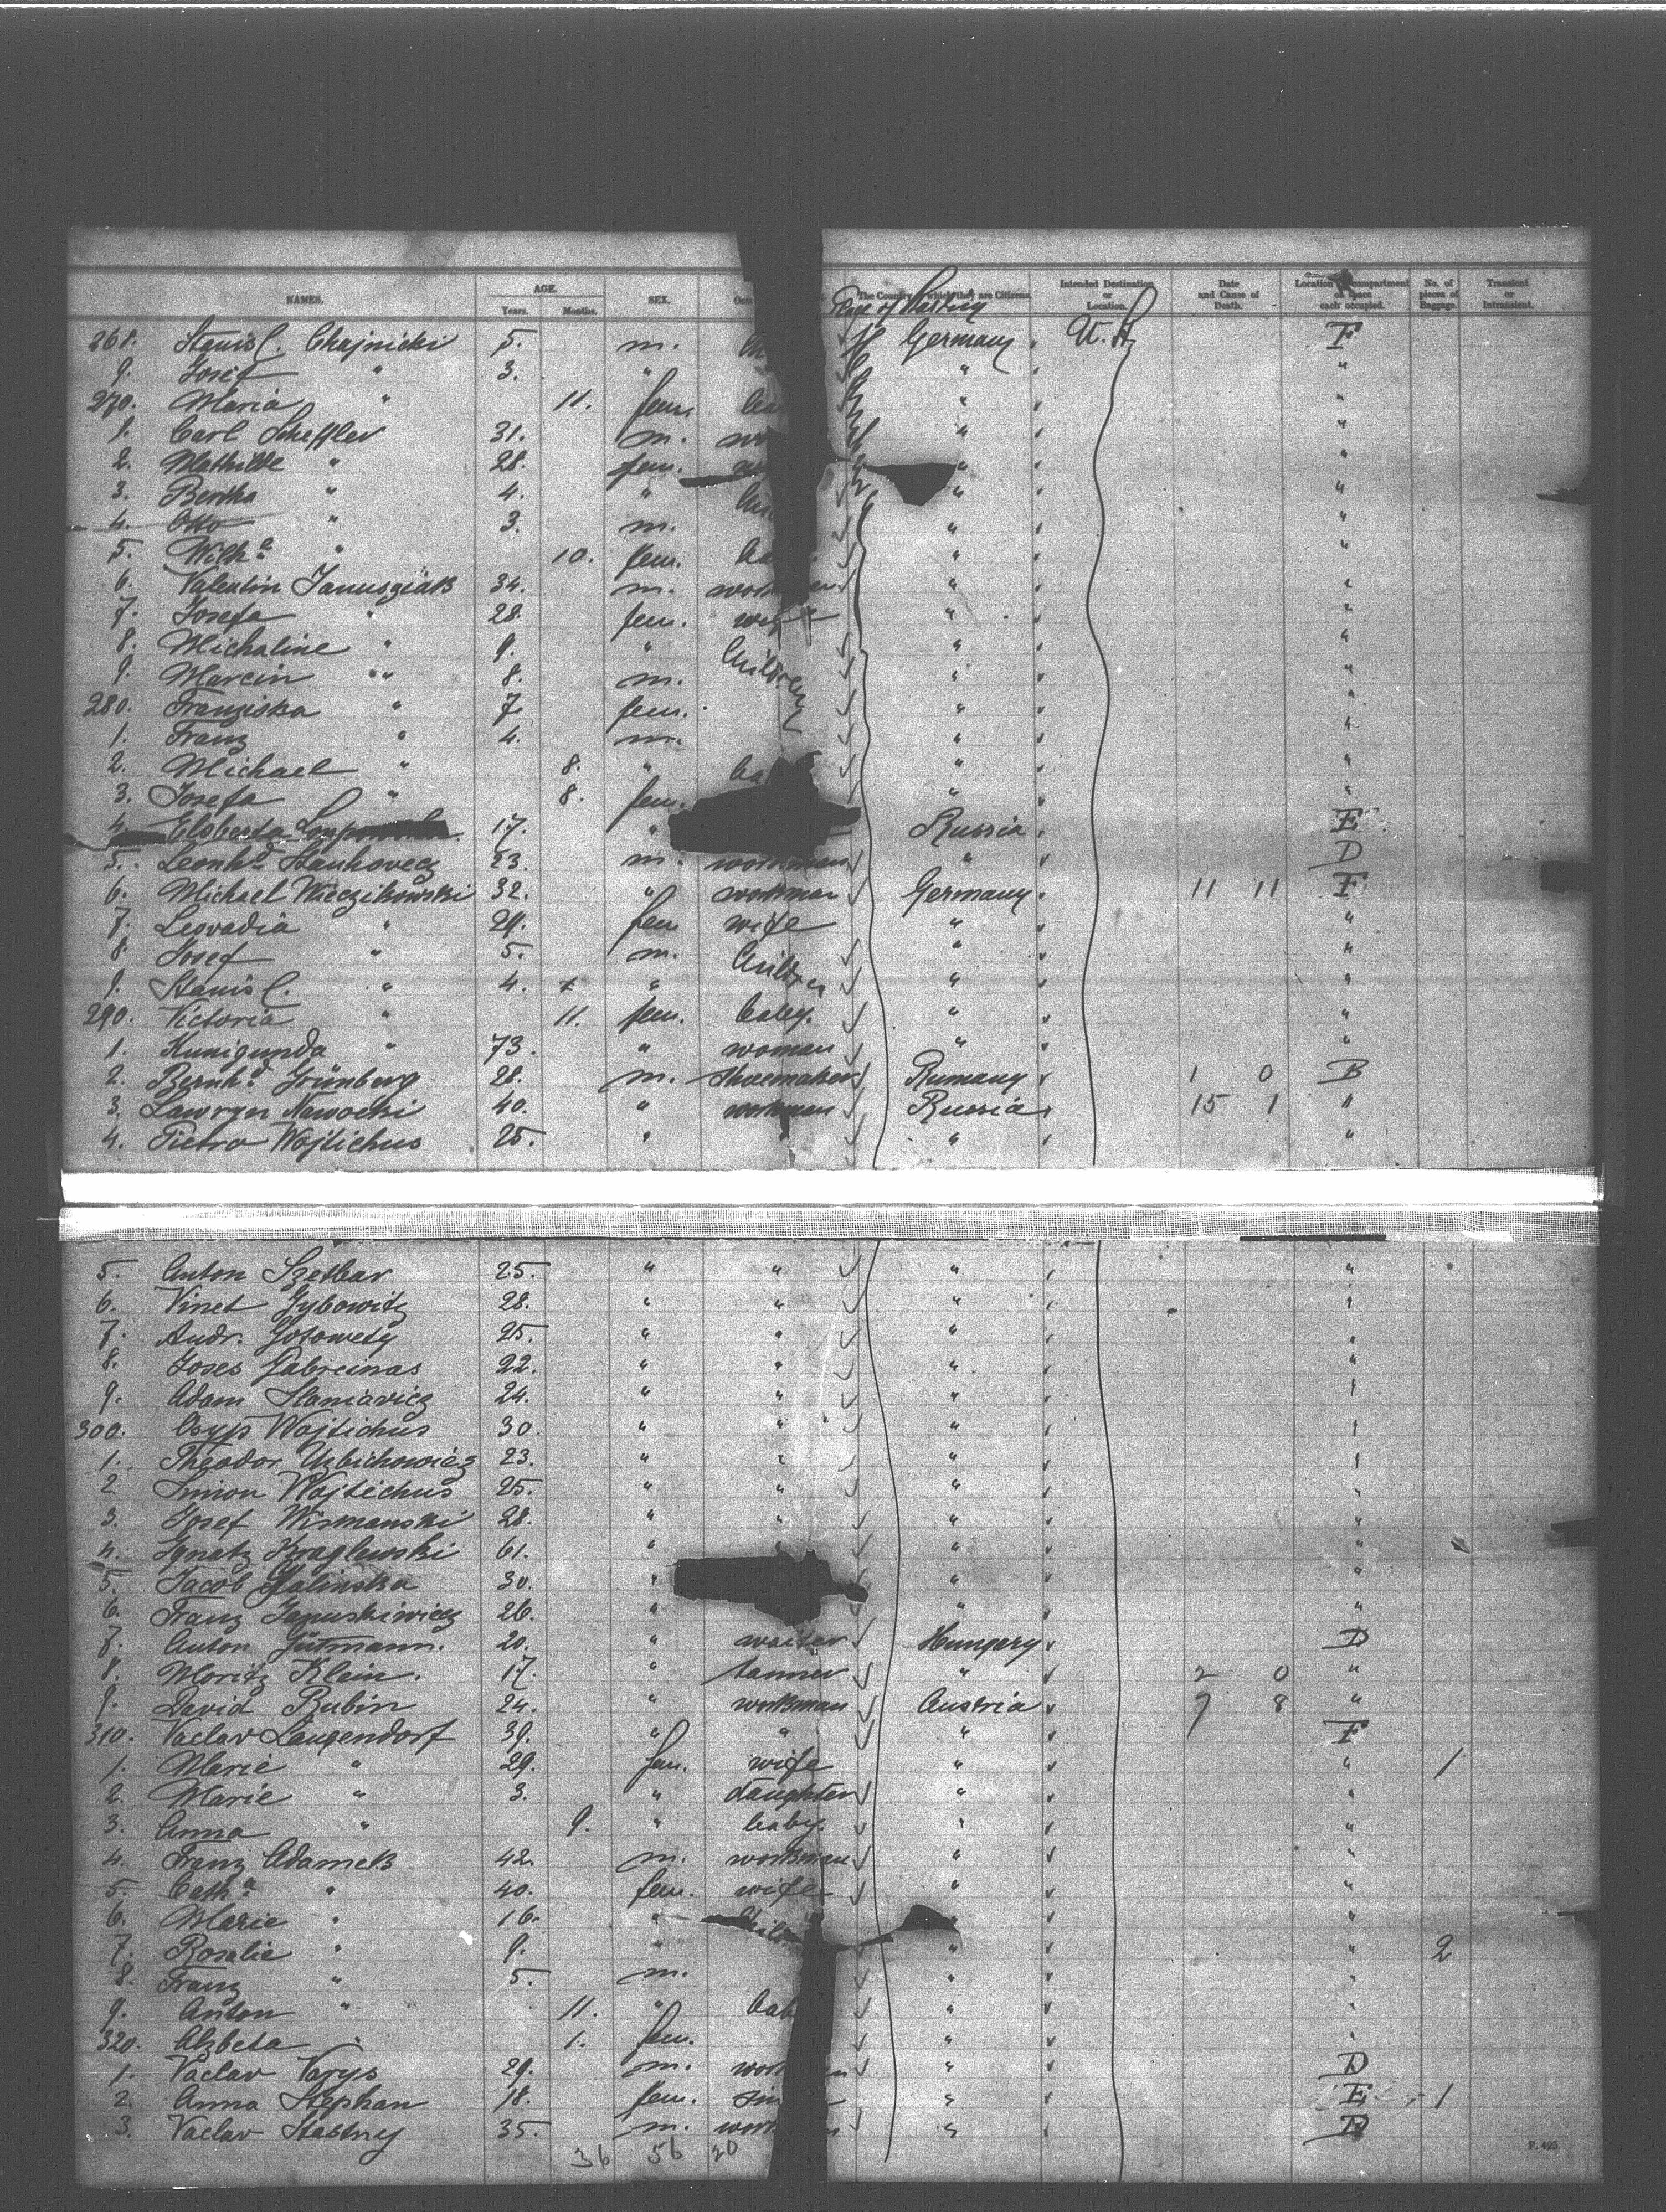 NAMES. AGE. Years. Months. SEX. The Country of which they are Citizens. Intended Destination or Location. Date and Cause of Death. Location of compartment or space each occupied. No. of pieces of Baggage. Transient or Intransient.
268. Stanisl. Chajnicki 5. m. Germany U.S. F
9. Josef " 3. " " "
270. Maria " 11. fem. " "
1. Carl Scheffler 31. m. " "
2. Mathilde " 28. fem. " "
3. Bertha " 4. " " "
4. Otto " 3. m. " "
5. Wilhe " 10. fem. " "
6. Valentin Janusziak 34. m. workman " "
7. Josefa " 28. fem. wife " "
8. Michaline " 9. " Children " "
9. Marcin " 8. m. " "
280. Franziska " 7. fem. " "
1. Franz " 4. m. " "
2. Michael " 8. " " "
3. Josefa " 8. fem. " "
4. Elsbeeta 17. " Russia E
5. Leonhd 23. m. workman " D
6. Michael Wieczikowski 32. " workman Germany 11 11 F
7. Leovadia " 29. fem wife " "
8. Josef " 5. m. Children " "
9. Stanisl. " 4. " " "
290. Victoria " 11. fem. baby. " "
1. Kunigunda " 73. " woman " "
2. Bernhd Grünberg 28. m. shoemaker Rumany 1 0 B
3. Lawryn Nawocki 40. " workman Russia 15 1 "
4. Pietro Wojtichus 25. " " "
5. Anton Szetbar 25. " " " "
6. Vinet Gybowitz 28. " " " "
7. Andr. 25. " " " "
8. Joses Gabreinas 22. " " " "
9. Adam Staniavicz 24. " " " "
300. Osyp Wojtichus 30. " " " "
1. Theodor Uzbichowicz 23. " " " "
2 Simon Wojtichus 25. " " " "
3. Josef Wismanski 28. " " " "
4. Ignatz Kraglewski 61. " " "
5. Jacob Galinska 30. " " "
6. Franz Januskiwicz 26. " " "
7. Anton Gutmann. 20. " waiter Hungery D
8. Moritz Klein. 17. " tanner " 2 0 "
9. David Rubin 24. " workman Austria 7 8 "
310. Vaclav Langendorf 39. " " " F
1. Marie " 29. fem. wife " " 1
2. Marie " 3. " daughter " "
3. Anna " 9. " baby. " "
4. Franz Adamek 42. m. workman " "
5. Catha " 40. fem. wife " "
6. Marie " 16. " " "
7. Rosalie " 9. " " " 2
8. Franz " 5. m. " "
9. Anton " 11. " " "
320. Alzbeta " 1. fem. " "
1. Vaclav Varys 29. m. " D
2. Anna Stephan 18. fem. " E 1
3. Vaclav Stastny 35. m. " D
36 56 20
F. 425.